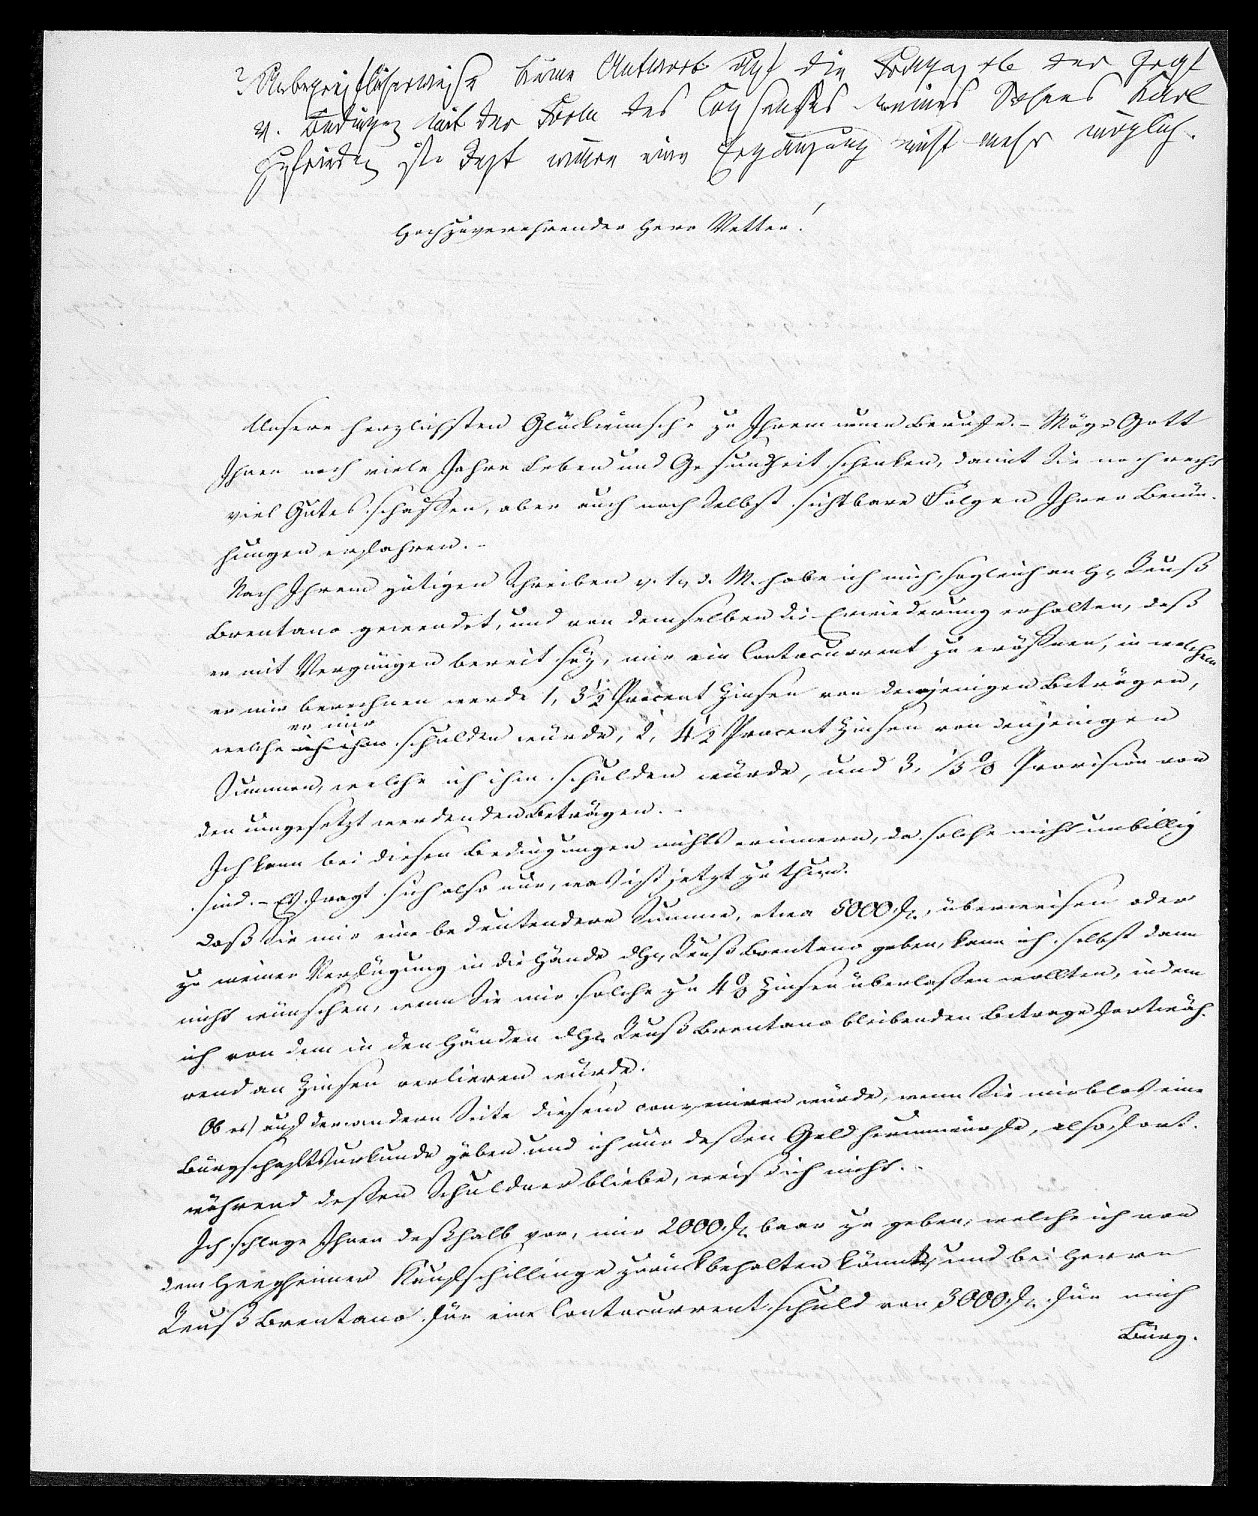 ? Unbegreiflicherweise keine Antwort auf die Frage, ob der
v. mit der Form des Consenses meines Sohnes Karl
zufrieden ist. Jezt wäre eine Ergänzung nicht mehr möglich.
Hochzuverehrender Herr Vetter!
Unsere herzlichsten Glückwünsche zu Ihrem neuen Berufe. – Möge Gott
Ihnen noch viele Jahre Leben und Gesundheit schenken, damit Sie noch recht
viel Gutes schaffen, aber auch noch selbst sichtbare Folgen Ihrer Bemü-
hungen erfahren. –
Nach Ihrem gütigen Schreiben v. d. M. habe ich mich sogleich an H. Reuß
Brentano gewendet, und von demselben die Erwiederung erhalten, daß
er mit Vergnügen bereit sey, mir ein Contocurrent zu eröffnen, in welchem
er mir berechnen werde 1, 3 1/2 Procent Zinsen von denjenigen Beträgen,
er mir
welche ich ihm schulden würde, 2, 4 1/2 Procent Zinsen von denjenigen
Summen, welche ich ihm schulden würde, und 3, 1/3 % Provision von
den umgesetzt werdenden Beträgen. –
Ich kann bei diesen Bedingungen nichts erinnern, da solche nicht unbillig
sind. – Es fragt sich also nur, was ist jetzt zu thun.
Daß Sie mir eine bedeutendere Summe, etwa 5000 fl., überweisen oder
zu meiner Verfügung in die Hände des H. Reuß Brentano geben, kann ich selbst dann
nicht wünschen, wenn Sie mir solche zu 4 % Zinsen überlassen wollten, indem
ich von dem in den Händen des H. Reuß Brentano bleibenden Betrage fortwäh-
rend an Zinsen verlieren würde.
Ob es auf der andern Seite diesem conveniren würde, wenn Sie mir blos eine
Bürgschaftsurkunde gäben und ich nur dessen Geld herumwürfe, also fort-
während dessen Schuldner bliebe, weiß ich nicht. –
Ich schlage Ihnen deßhalb vor, mir 2000 fl. baar zu geben, welche ich von
dem Kaufschillinge zurückbehalten könnte, und bei Herrn
Reuß Brentano für eine Contocurrentschuld von 3000 fl. für mich
Bürg-